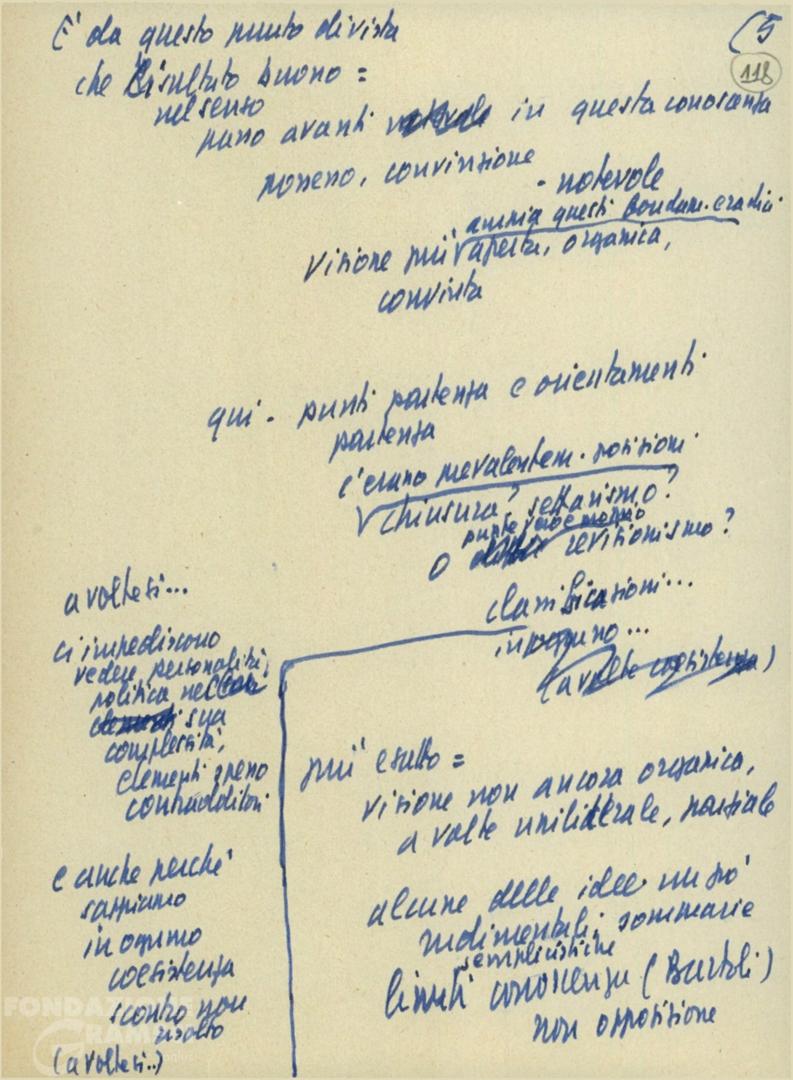 (5
118
E' da questo punto di vista
che risultato buono =
nel senso
passo avanti in questa conoscenza
possesso, convinzione
- notevole
questi fondam. e radici
visione più aperta, organica,
convinta
qui - punti partenza e orientamenti
partenza
c'erano prevalentem. posizioni
chiusura? settarismo?
o revisionismo?
classificazioni...
in ognuno...
(a volte coesistenza)
a volte sì...
ci impediscono
vedere personalità
politica nella
sua
complessità,
elementi spesso
contraddittori
e anche perché
sappiamo
in ognuno
coesistenza
scontro non
risolto
(a volte sì..)
più esatto =
visione non ancora organica,
a volte unilaterale, parziale
alcune delle idee un po'
rudimentali, sommarie
semplicistiche
limiti conoscenza (Bartoli)
non opposizione
FONDAZIONE
GRAMSCI